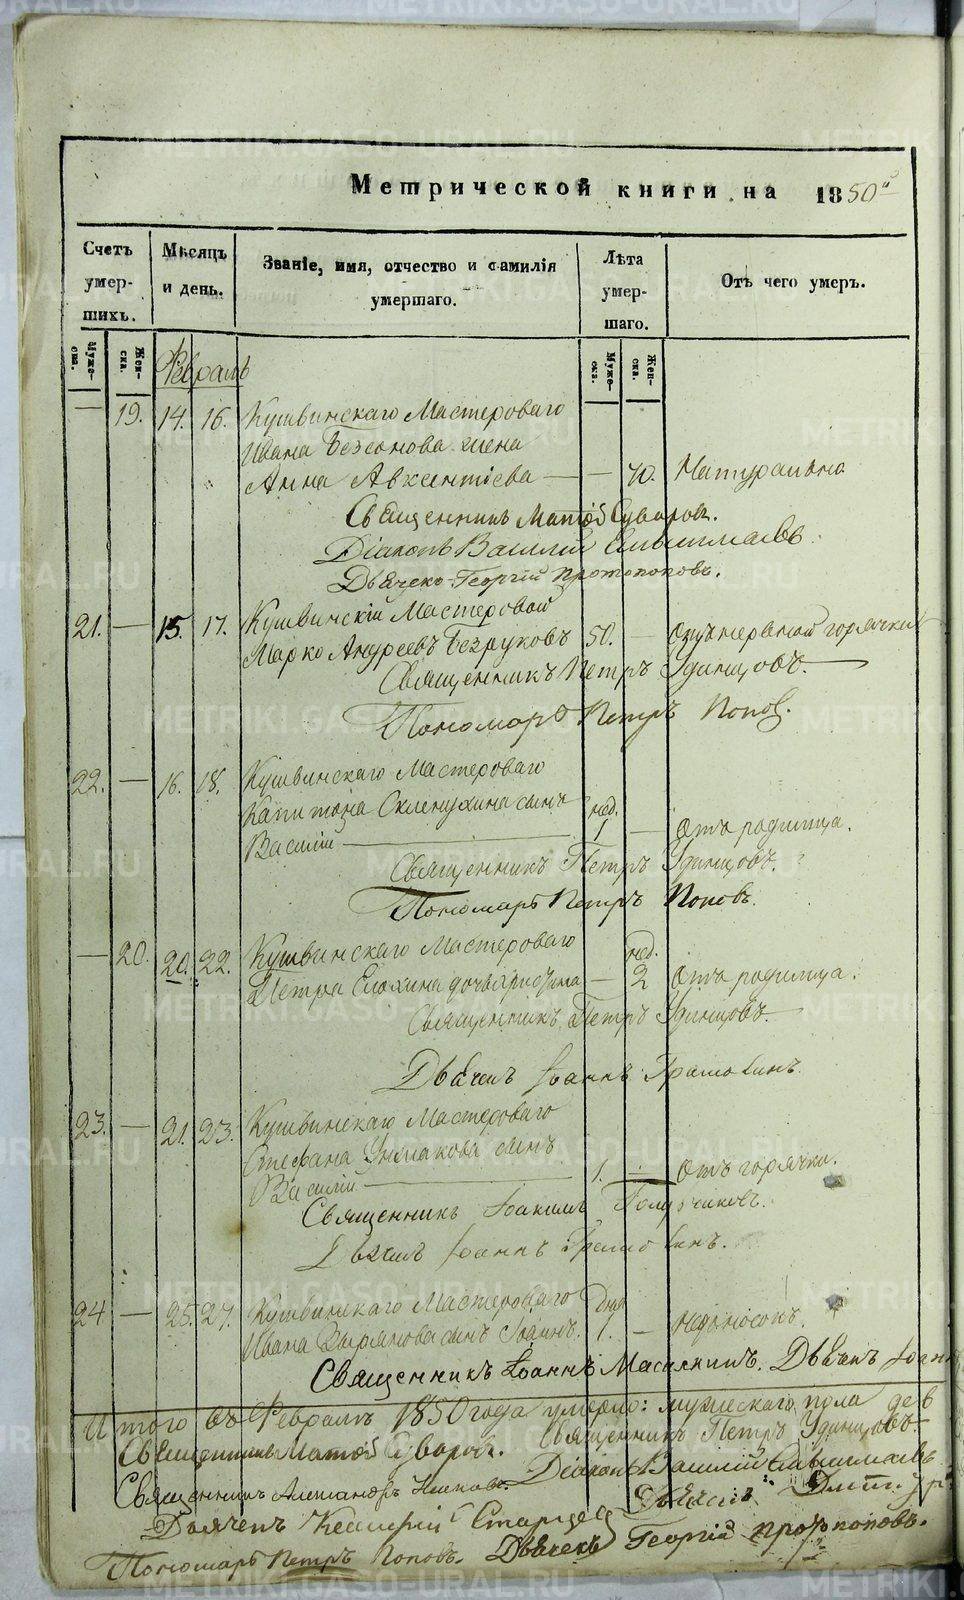 Метрической книги на 1850й
Счетъ умер-шихъ.
Мѣсяцъ и день.
Званіе, имя, отчество и фамилія умершаго.
Лѣта умер-шаго.
Отъ чего умеръ.
Муже-ска. Жен-ска.
Муже-ска. Жен-ска.
Февраль
— 19. 14. 16. Кушвинскаго Мастероваго
Ивана Безсонова жена
Анна Авксентіева — — 70. Натурально
Священникъ Матѳій Суворовъ.
Діаконъ Василій
Дьячекъ Георгій Протопоповъ.
21. — 15. 17. Кушвинскій Мастеровой
Марко Андреевъ Безруковъ 50. — Отъ нервной горячки
Священникъ Петръ Удинцовъ.
Пономарь Петръ Попов.
22. — 16. 18. Кушвинскаго Мастероваго
Капитона сынъ нед.
Василій — 1 — Отъ родимца.
Священникъ Петръ Удинцовъ.
Пономарь Петръ Поповъ.
— 20. 20. 22. Кушвинскаго Мастероваго нед.
Петра Елохина дочь — 2 Отъ родимца.
Священникъ Петръ Удинцовъ.
Дьячекъ Іоаннъ
23. — 21. 23. Кушвинскаго Мастероваго
Стефана сынъ
Василій — 1. — Отъ горячки.
Священникъ Іоакимъ
Дьячекъ Іоаннъ
24 — 25. 27. Кушвинскаго Мастероваго
Ивана Зырянова сынъ Іоаннъ. 1. — недоносокъ.
Священникъ Іоаннъ Дьячекъ Іоанн
Итого въ Февралѣ 1850 года умерло: мужескаго пола дев
Священникъ Матѳій Суворовъ. Священникъ Петръ Удинцовъ.
Діаконъ Василій
Священникъ Александръ Дьячекъ
Дьячекъ
Пономарь Петръ Поповъ. Дьячекъ Георгій Протопоповъ.
METRIKI.GASO-URAL.RU